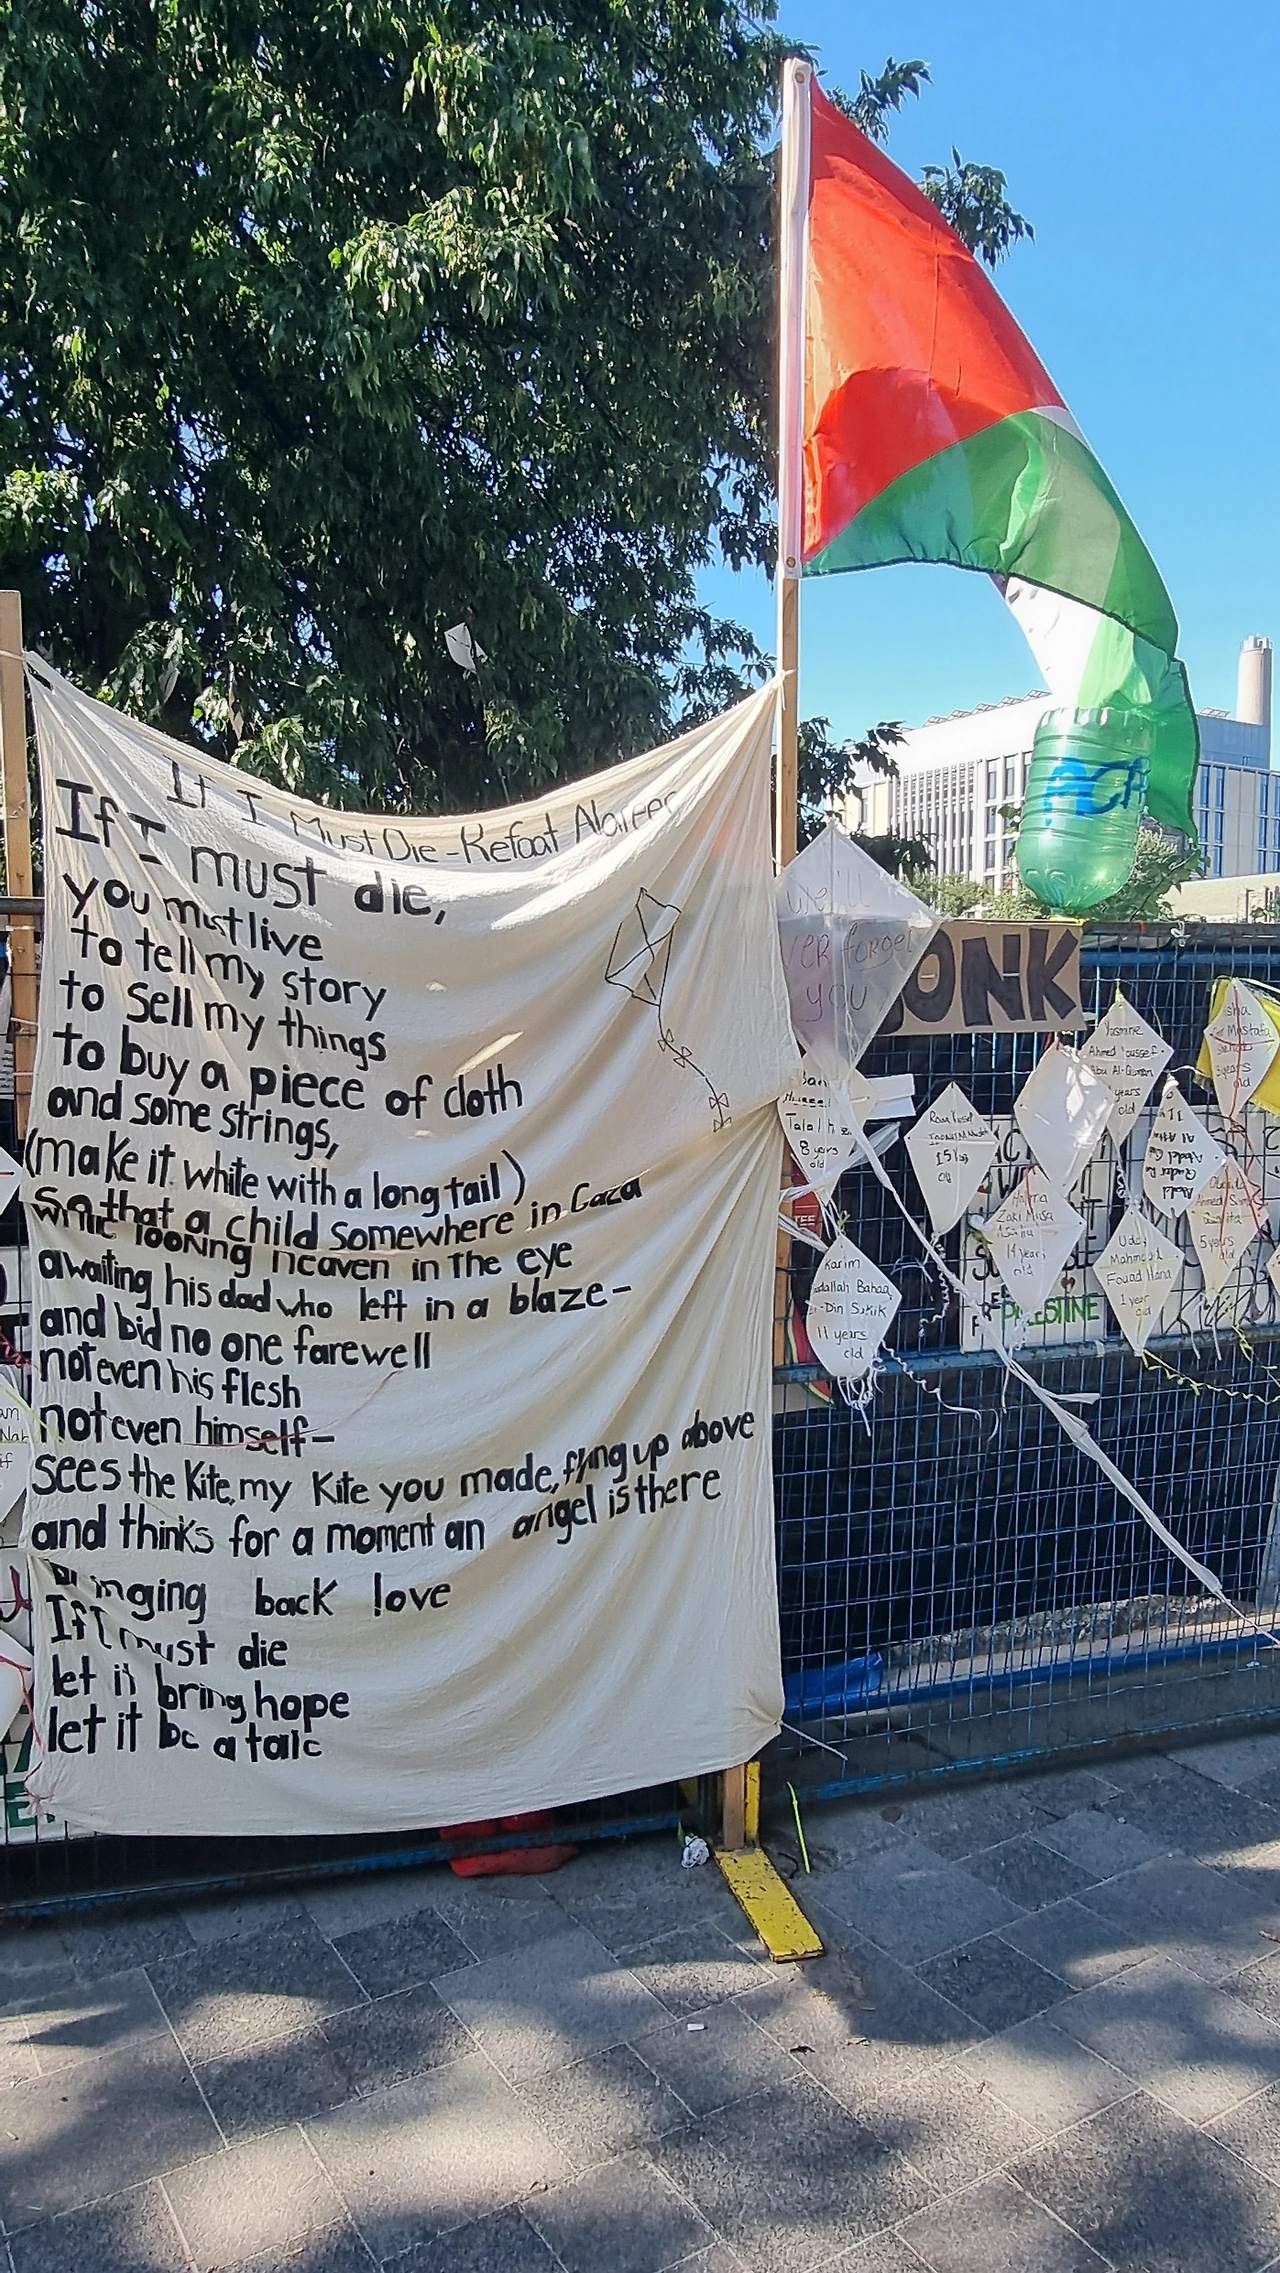 If I Must Die - Refaat Alareer
If I must die,
you must live
to tell my story
to sell my things
to buy a piece of cloth
and some strings,
(make it white with a long tail)
so that a child somewhere in Gaza
while looking heaven in the eye
awaiting his dad who left in a blaze-
and bid no one farewell
not even his flesh
not even himself-
sees the kite, my kite you made, flying up above
and thinks for a moment an angel is there
bringing back love
If I must die
let it bring hope
let it be a tale
we'll
forget
you
ONK
Talal
8 years
old
Karim
Bahaa
-Din Sukik
11 years
old
15
old
Zaki Musa
14 years
old
Yasmine
Ahmed Youssef
Abu Al-
years
old
Mahmoud
Fouad Hana
1 year
old
Mustafa
5 years
old
Ahmed
5 years
old
PALESTINE